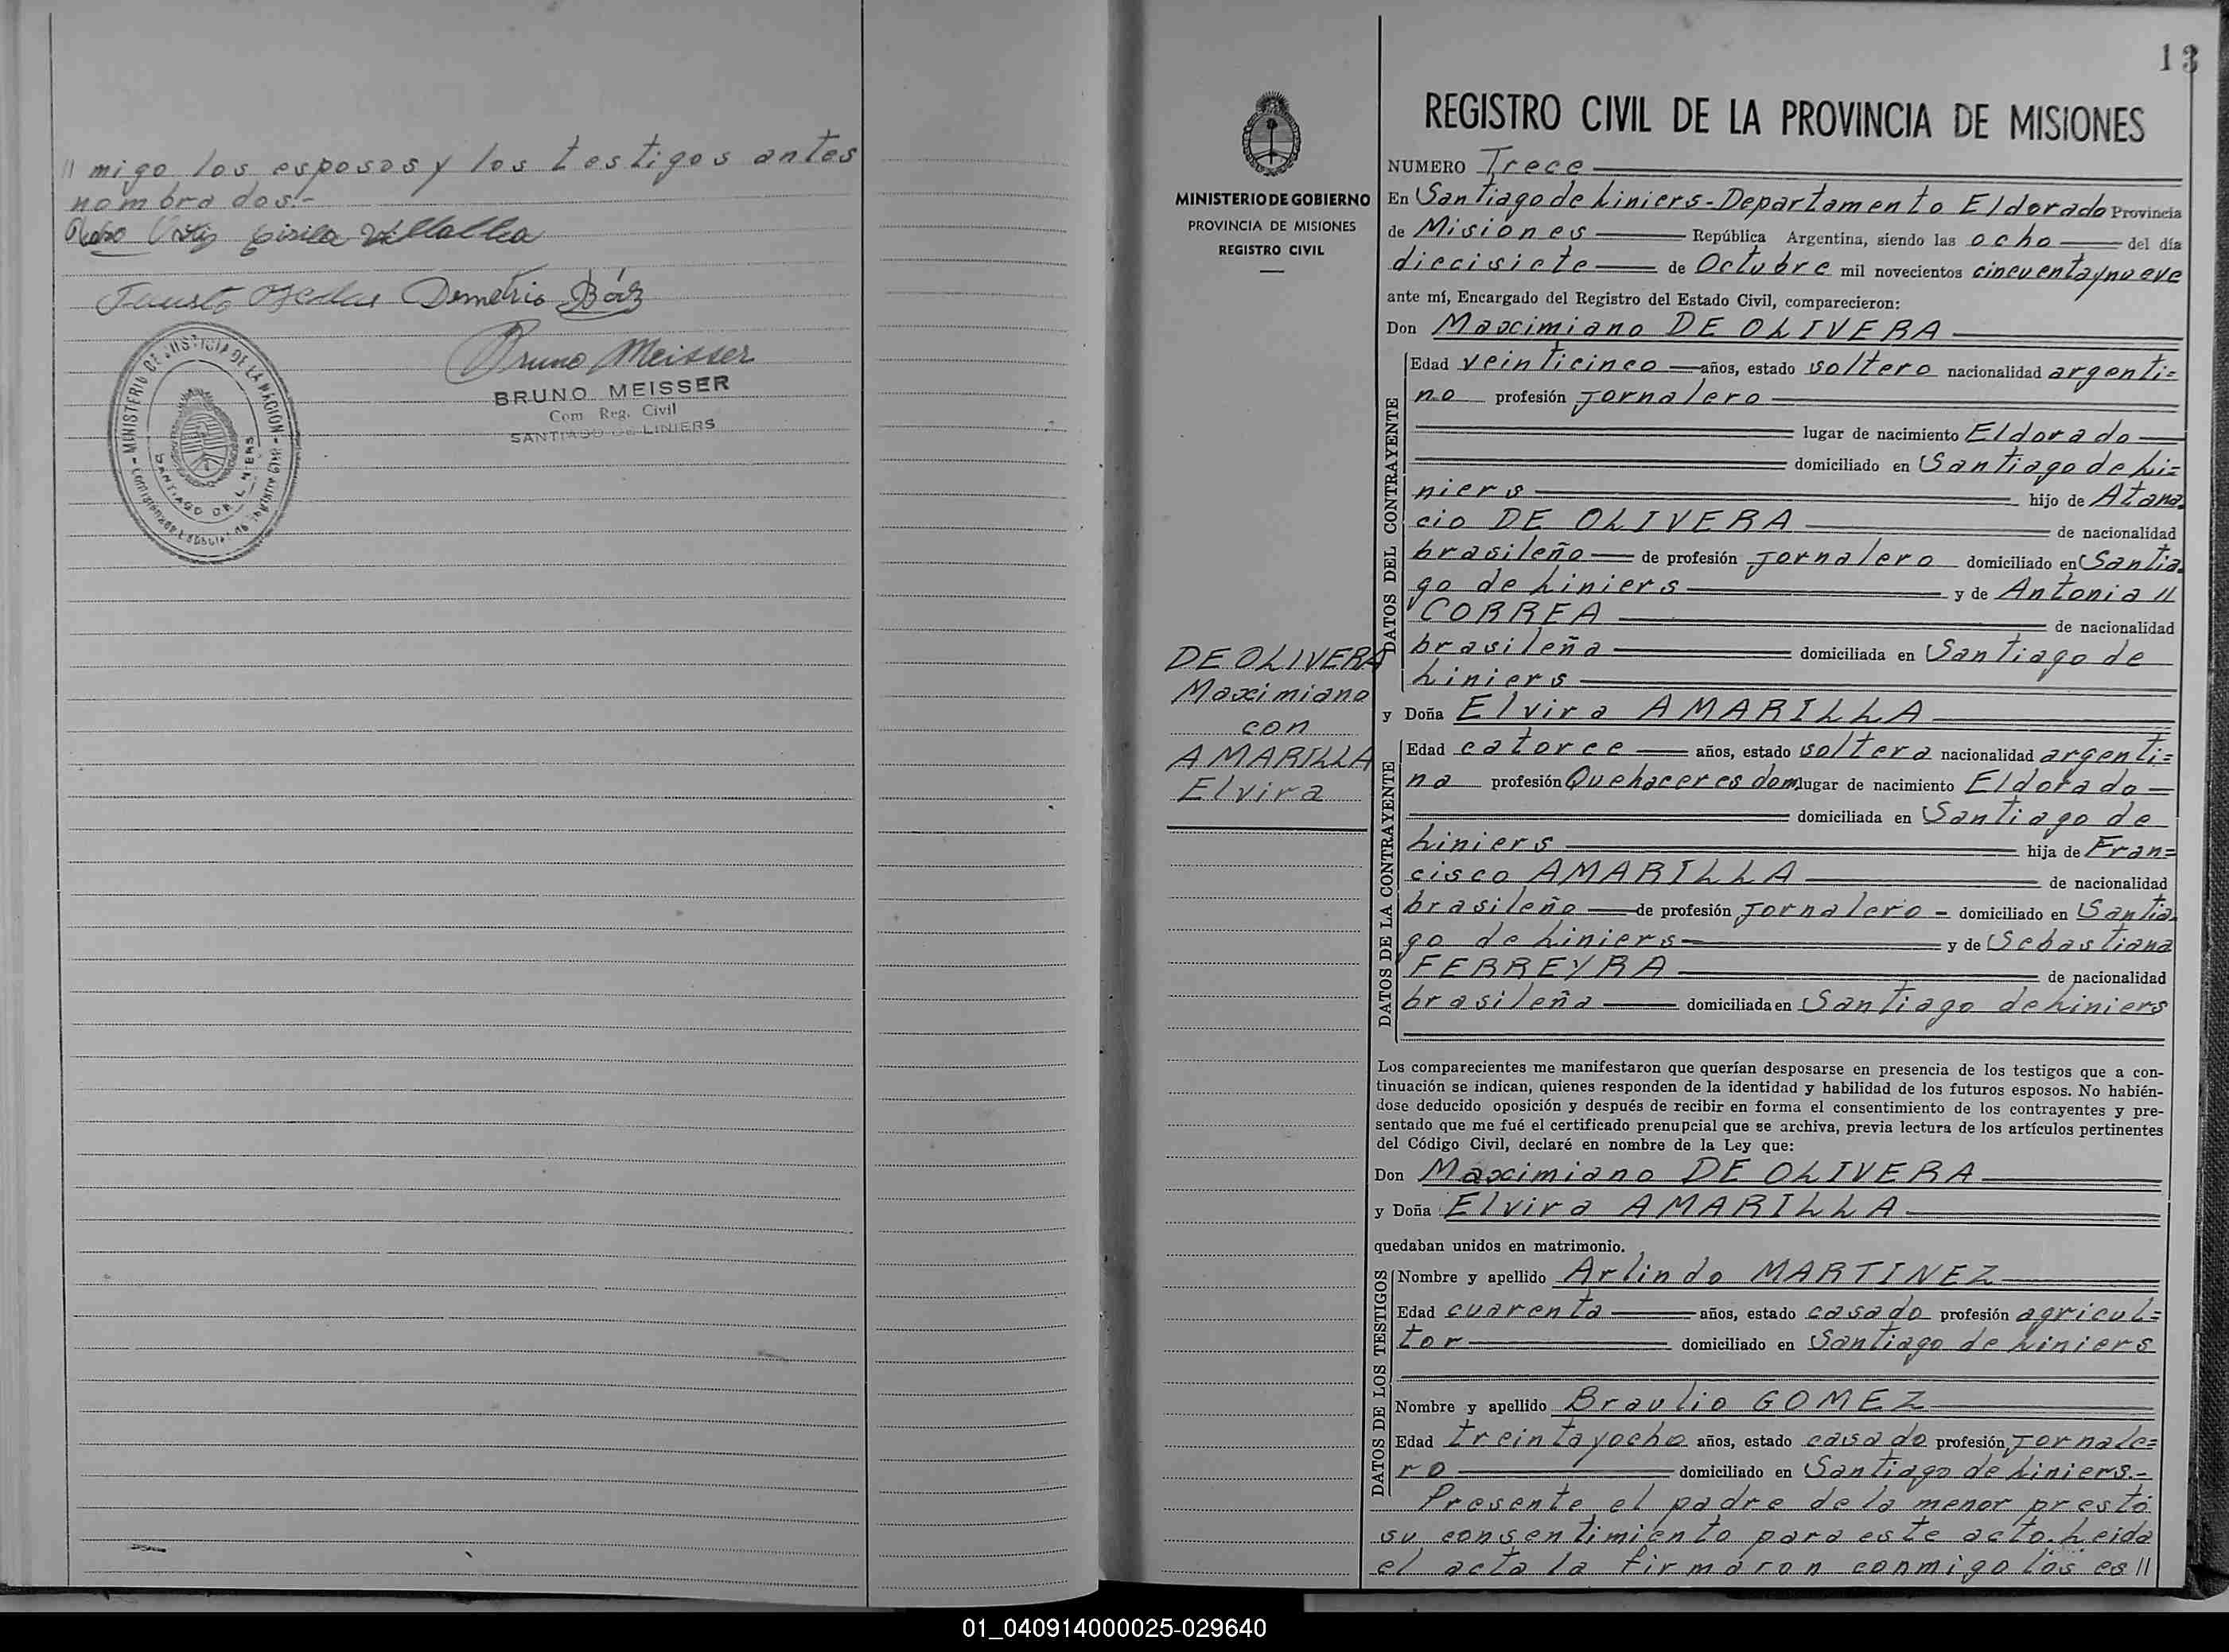 // migo los esposos y los testigos antes
nombrados.-
Pedro Ortiz Cirila Villalba
Fausto Demetrio Báez
Bruno Meisser
BRUNO MEISSER
Com. Reg. Civil
SANTIAGO DE LINIERS
MINISTERIO DE JUSTICIA DE LA NACION
SANTIAGO DE LINIERS
13
MINISTERIO DE GOBIERNO
PROVINCIA DE MISIONES
REGISTRO CIVIL
DE OLIVERA
Maximiano
con
AMARILLA
Elvira
REGISTRO CIVIL DE LA PROVINCIA DE MISIONES
NUMERO Trece
En Santiago de Liniers-Departamento Eldorado Provincia
de Misiones República Argentina, siendo las ocho del día
diecisiete de Octubre mil novecientos cincuentaynueve
ante mí, Encargado del Registro del Estado Civil, comparecieron:
Don Maximiano DE OLIVERA
DATOS DEL CONTRAYENTE
Edad veinticinco años, estado soltero nacionalidad argenti=
no profesión Jornalero
lugar de nacimiento Eldorado
domiciliado en Santiago de Li=
niers hijo de Atana=
cio DE OLIVERA de nacionalidad
brasileño de profesión Jornalero domiciliado en Santia=
go de Liniers y de Antonia //
CORREA de nacionalidad
brasileña domiciliada en Santiago de
Liniers
y Doña Elvira AMARILLA
DATOS DE LA CONTRAYENTE
Edad catorce años, estado soltera nacionalidad argenti=
na profesión Quehaceres dom. lugar de nacimiento Eldorado
domiciliada en Santiago de
Liniers hija de Fran=
cisco AMARILLA de nacionalidad
brasileño de profesión Jornalero - domiciliado en Santia=
go de Liniers y de Sebastiana
FERREYRA de nacionalidad
brasileña domiciliada en Santiago de Liniers
Los comparecientes me manifestaron que querían desposarse en presencia de los testigos que a con-
tinuación se indican, quienes responden de la identidad y habilidad de los futuros esposos. No habién-
dose deducido oposición y después de recibir en forma el consentimiento de los contrayentes y pre-
sentado que me fué el certificado prenupcial que se archiva, previa lectura de los artículos pertinentes
del Código Civil, declaré en nombre de la Ley que:
Don Maximiano DE OLIVERA
y Doña Elvira AMARILLA
quedaban unidos en matrimonio.
DATOS DE LOS TESTIGOS
Nombre y apellido Arlindo MARTINEZ
Edad cuarenta años, estado casado profesión agricul=
tor domiciliado en Santiago de Liniers
Nombre y apellido Braulio GOMEZ
Edad treintayocho años, estado casado profesión Jornale=
ro domiciliado en Santiago de Liniers.-
Presente el padre de la menor prestó
su consentimiento para este acto. Leida
el acta la firmaron conmigo los es //
01_040914000025-029640